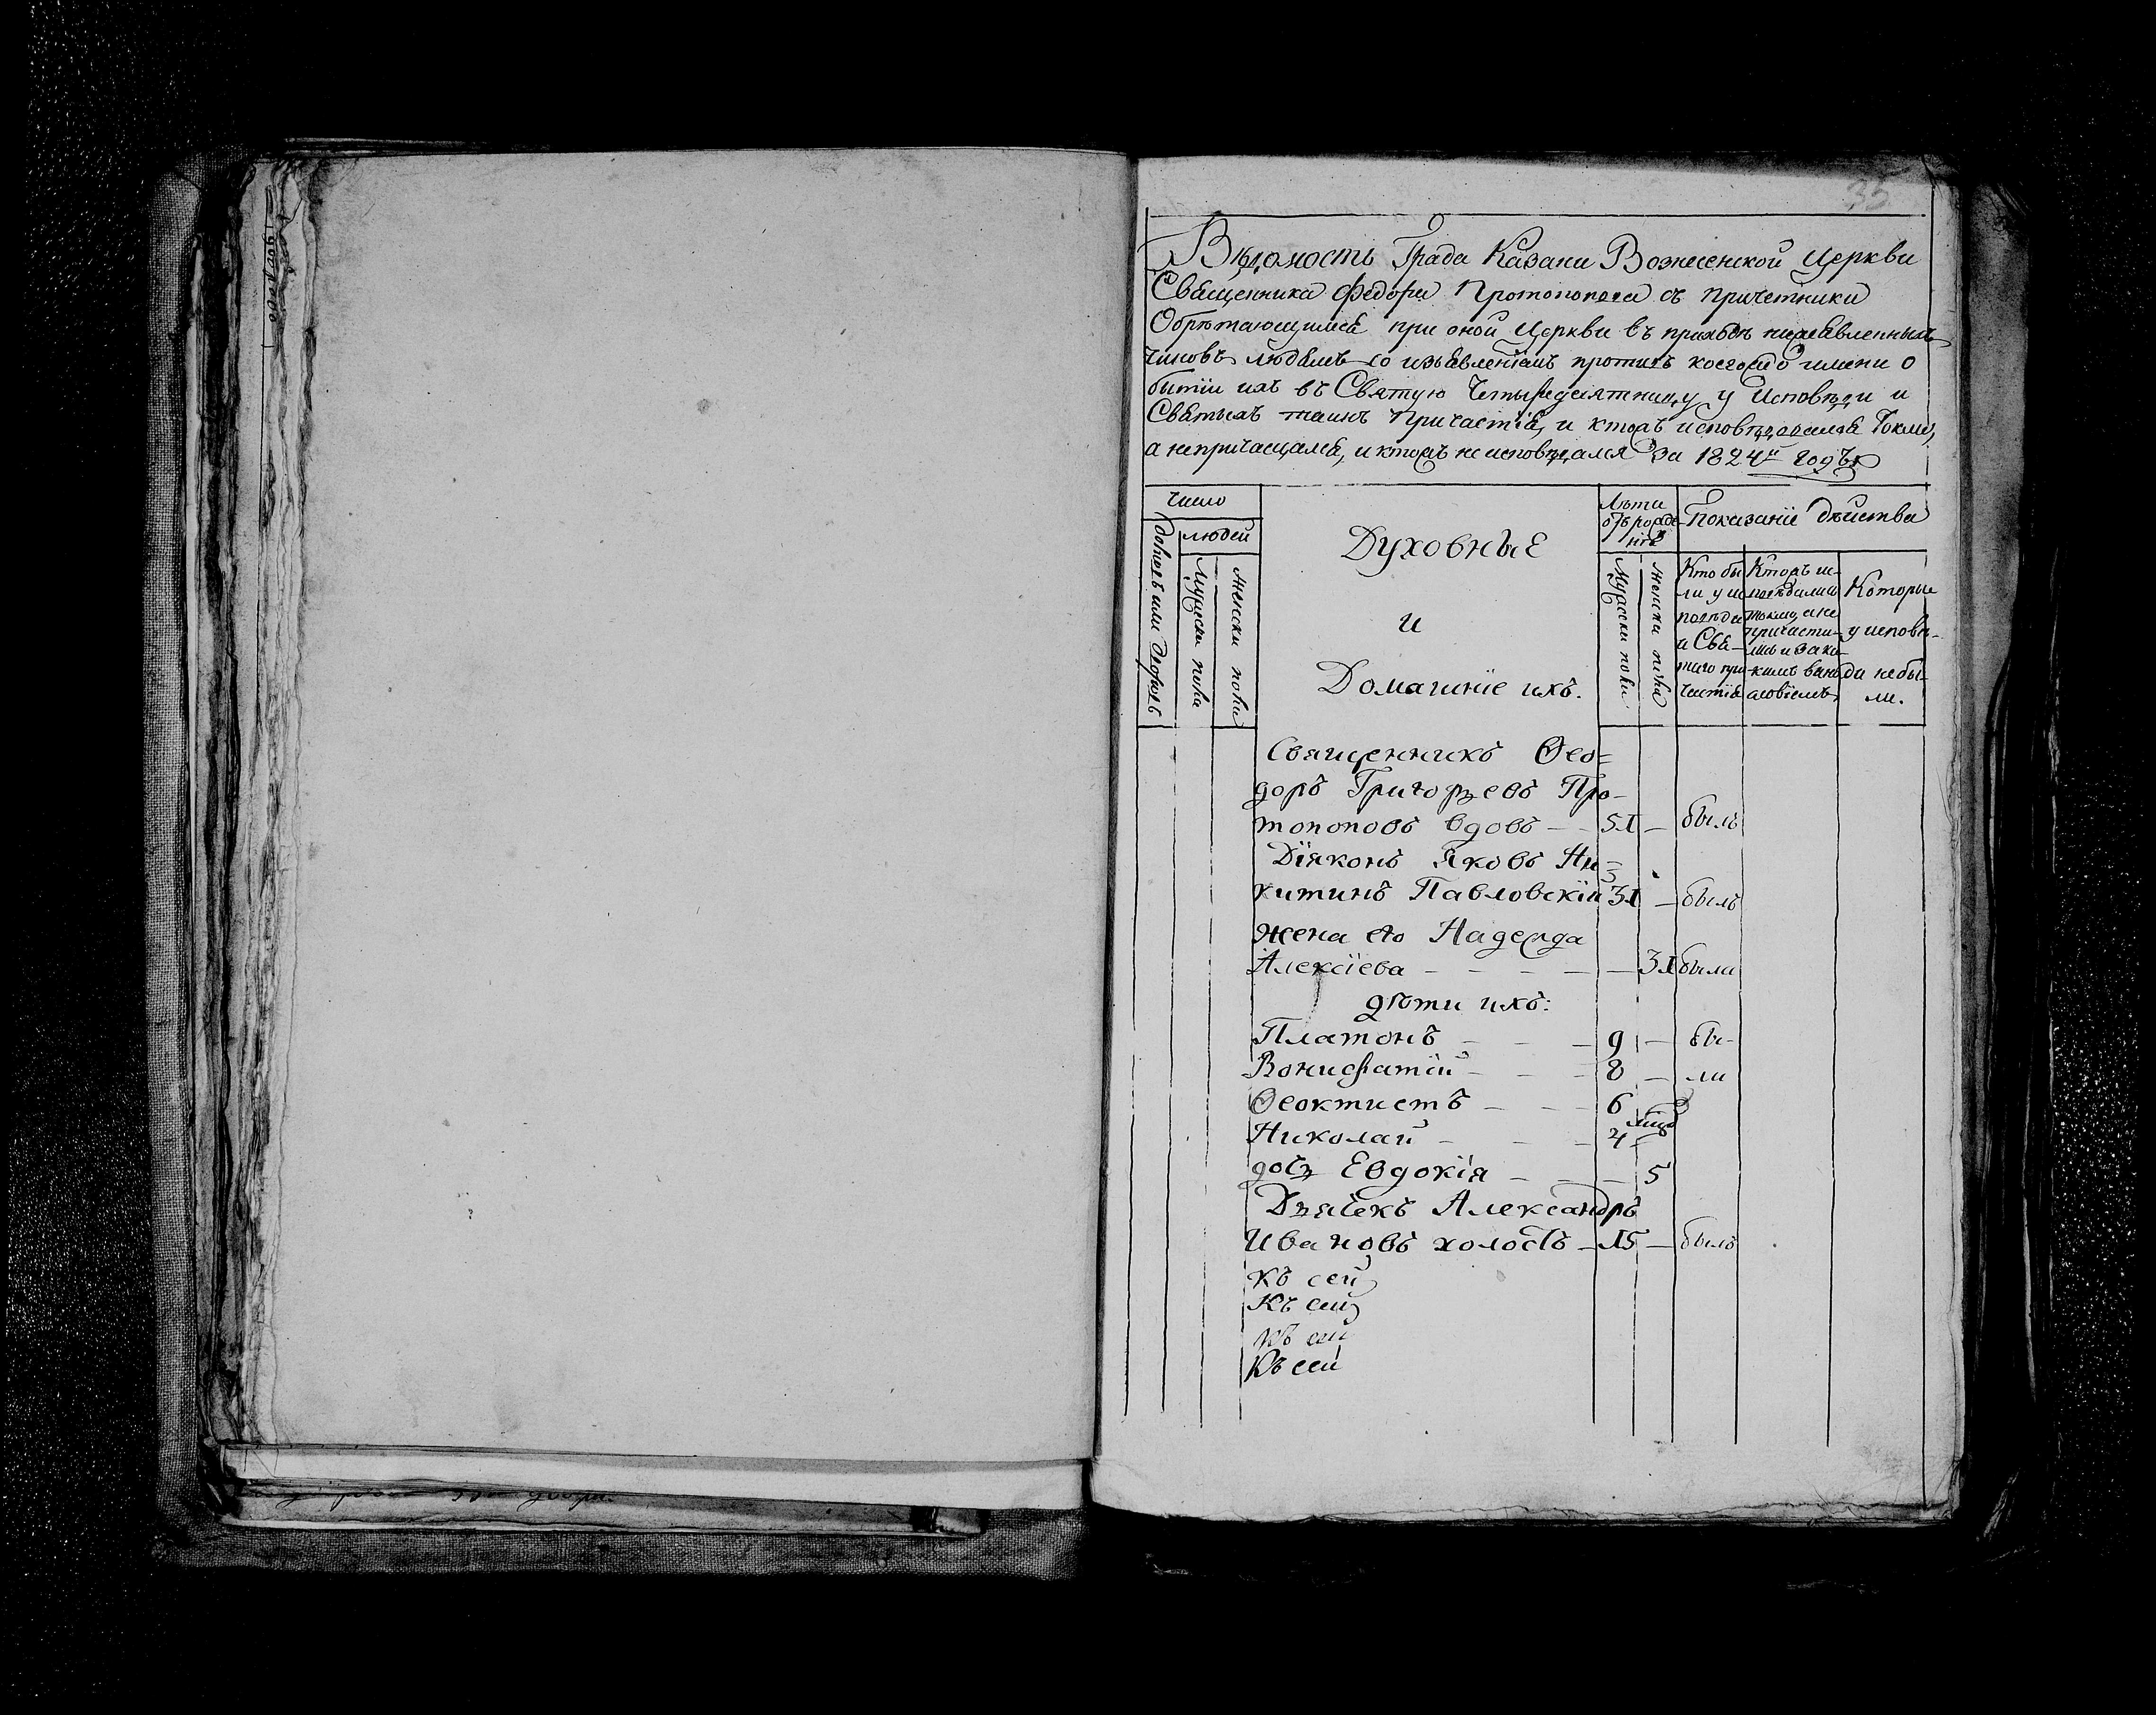 35
Вѣдомость Града Казани Вознесенской Церкви
Священника Федора Протопопова съ причетники
Обрѣтающимся при оной Церкви въ приходѣ нижеявленныхъ
чиновъ людемъ со изъявленіемъ противъ коегождо имени о
бытіи ихъ въ Святую Четыредесятницу у Исповѣди и
Святыхъ таинъ Причастія, и ктожъ исповѣдовался токмо,
а непричащался, и ктожъ не исповѣдался За 1824й годъ
число
Лѣта
отъ рожде
нія
Показаніе дѣйства
людей
Духовные
и
Домашніе ихъ.
дворовъ
Мужеска пола
женска пола
Мужеска пола
женска пола
Кто бы
ли у ис
повѣди
и Свя-
таго при
частія
Ктожъ ис-
повѣдались
токмо, а не
причасти-
лись и за ка
кимъ вин
ословіемъ
Которые
у исповѣ-
ди небы-
ли.
Священникъ Ѳео=
доръ Григорьевъ Про-
топоповъ вдовъ — 51 — былъ
Діаконъ Яковъ Ни=
китинъ Павловскій 31 — былъ
жена его Надежда
Алексіева — 31 были
дѣти ихъ:
Платонъ — 9 — бы-
Вонифатій — 8 — ли
Ѳеоктистъ — 6
Николай — 4
дочь Евдокія — 5
Дьячекъ Александръ
Ивановъ холостъ — 15 — былъ
Къ сей
Къ сей
Къ сей
Къ сей